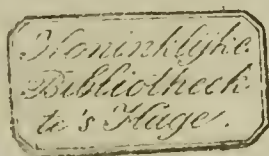 Koninklijke
Bibliotheek
te's Hage.